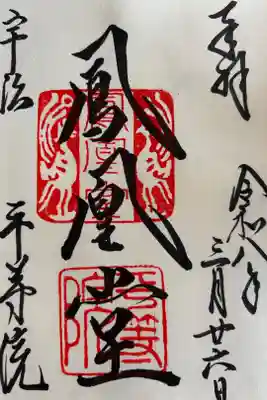 奉拝
令和八年
三月廿六日
鳳凰堂
宇治
平等院